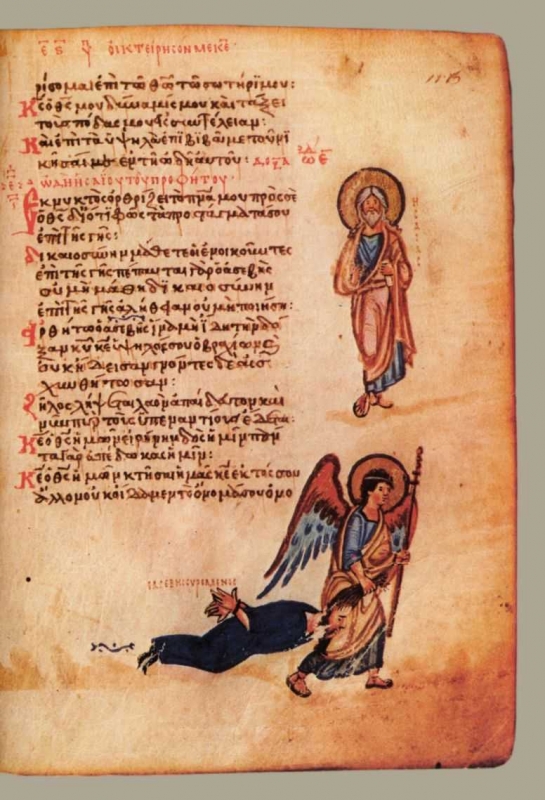 οἰκτείρησόν με κε
ρίσομαι ἐπὶ τῶ θῶ τῶ σωτῆρί μου:
Κε ὁ θς μου δύναμίς μου καὶ τάξει
τοὺς πόδας μου εἰς συντέλειαν:
Καὶ ἐπὶ τὰ ὑψηλὰ ἐπιβιβᾶ με τοῦ νι
κῆσαί με ἐν τῆ ὠδῆ αὐτοῦ:
ὠδὴ ἡσαΐου τοῦ προφήτου
Ἐκ νυκτὸς ὀρθρίζει τὸ πνα μου πρὸς σὲ
ὁ θς διότι φῶς τὰ προστάγματά σου
ἐπὶ τῆς γῆς:
δικαιοσύνην μάθετε οἱ ἐνοικοῦντες
ἐπὶ τῆς γῆς πέπαυται γὰρ ὁ ἀσεβὴς
οὐ μὴ μάθη δικαιοσύνην
ἐπὶ τῆς γῆς ἀλήθειαν οὐ μὴ ποιήση:
ἀρθήτω ὁ ἀσεβὴς ἵνα μὴ ἴδη τὴν δό
ξαν κυ κε ὑψηλός σου ὁ βραχίων καὶ
οὐκ ἤδεισαν γνόντες δὲ αἰσ
χυνθήτωσαν:
ζῆλος λήψεται λαὸν ἀπαίδευτον καὶ
νῦν πῦρ τοὺς ὑπεναντίους ἔδεται:
Κε ὁ θς ἡμῶν εἰρήνην δὸς ἡμῖν πάν
τα γὰρ ἀπέδωκας ἡμῖν:
Κε ὁ θς ἡμῶν κτῆσαι ἡμᾶς κε ἐκτός σου
ἄλλον οὐκ οἴδαμεν τὸ ὄνομά σου ὀνο